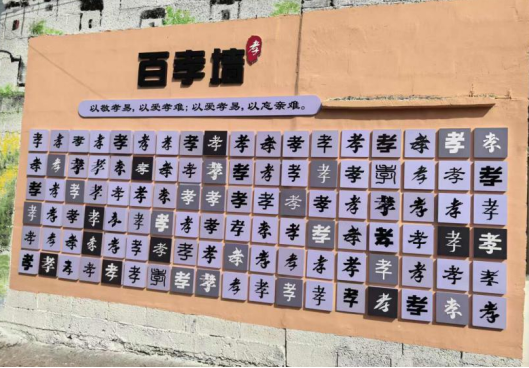 百孝墙
孝
以敬孝易，以爱孝难；以爱孝易，以忘亲难。
孝孝孝孝孝孝孝孝孝孝孝孝孝孝孝孝孝孝
孝孝孝孝孝孝孝孝孝孝孝孝孝孝孝孝孝孝
孝孝孝孝孝孝孝孝孝孝孝孝孝孝孝孝孝孝
孝孝孝孝孝孝孝孝孝孝孝孝孝孝孝孝孝孝
孝孝孝孝孝孝孝孝孝孝孝孝孝孝孝孝孝孝
孝孝孝孝孝孝孝孝孝孝孝孝孝孝孝孝孝孝